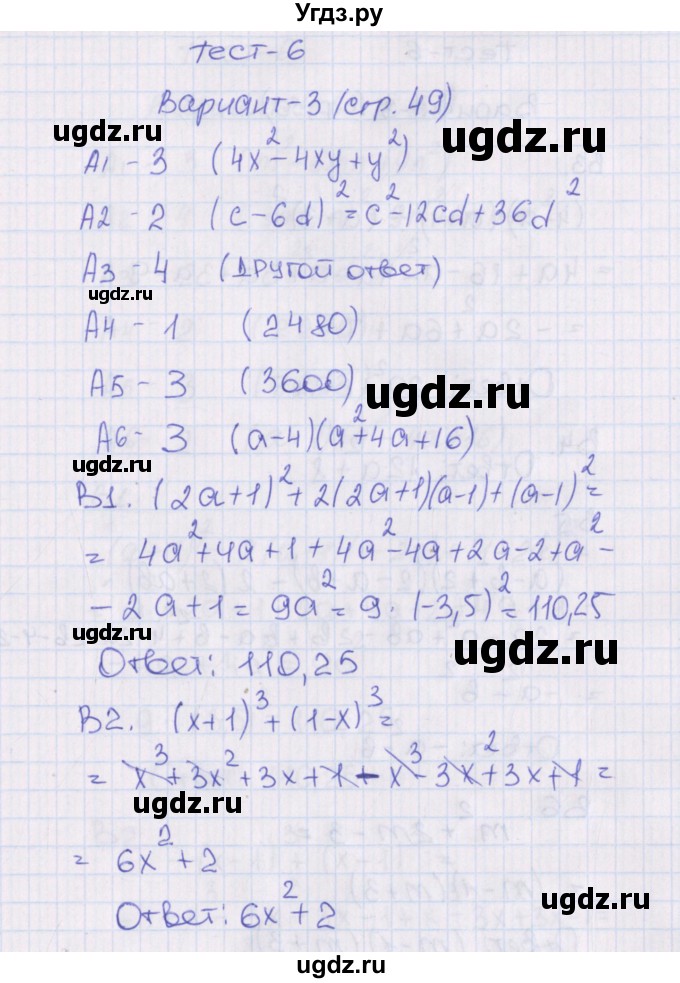 Угдз.ру
Тест-6
Вариант-3 (стр. 49)
ugdz.ru
A1 - 3 (4x² - 4xy + y²)
ugdz.ru
A2 - 2 (c - 6d)² = c² - 12cd + 36d²
A3 - 4 (другой ответ)
ugdz.ru
A4 - 1 (2480)
ugdz.ru
A5 - 3 (3600)
ugdz.ru
A6 - 3 (a-4)(a²+4a+16)
ugdz.ru
B1. (2a+1)² + 2(2a+1)(a-1) + (a-1)² =
= 4a² + 4a + 1 + 4a² - 4a + 2a - 2 + a² -
- 2a + 1 = 9a² = 9 · (-3,5)² = 110,25
ugdz.ru
ugdz.ru
Ответ: 110,25
B2. (x+1)³ + (1-x)³ =
= x³ + 3x² + 3x + 1 - x³ - 3x² + 3x + 1 =
ugdz.ru
ugdz.ru
= 6x² + 2
Ответ: 6x² + 2
ugdz.ru
ugdz.ru